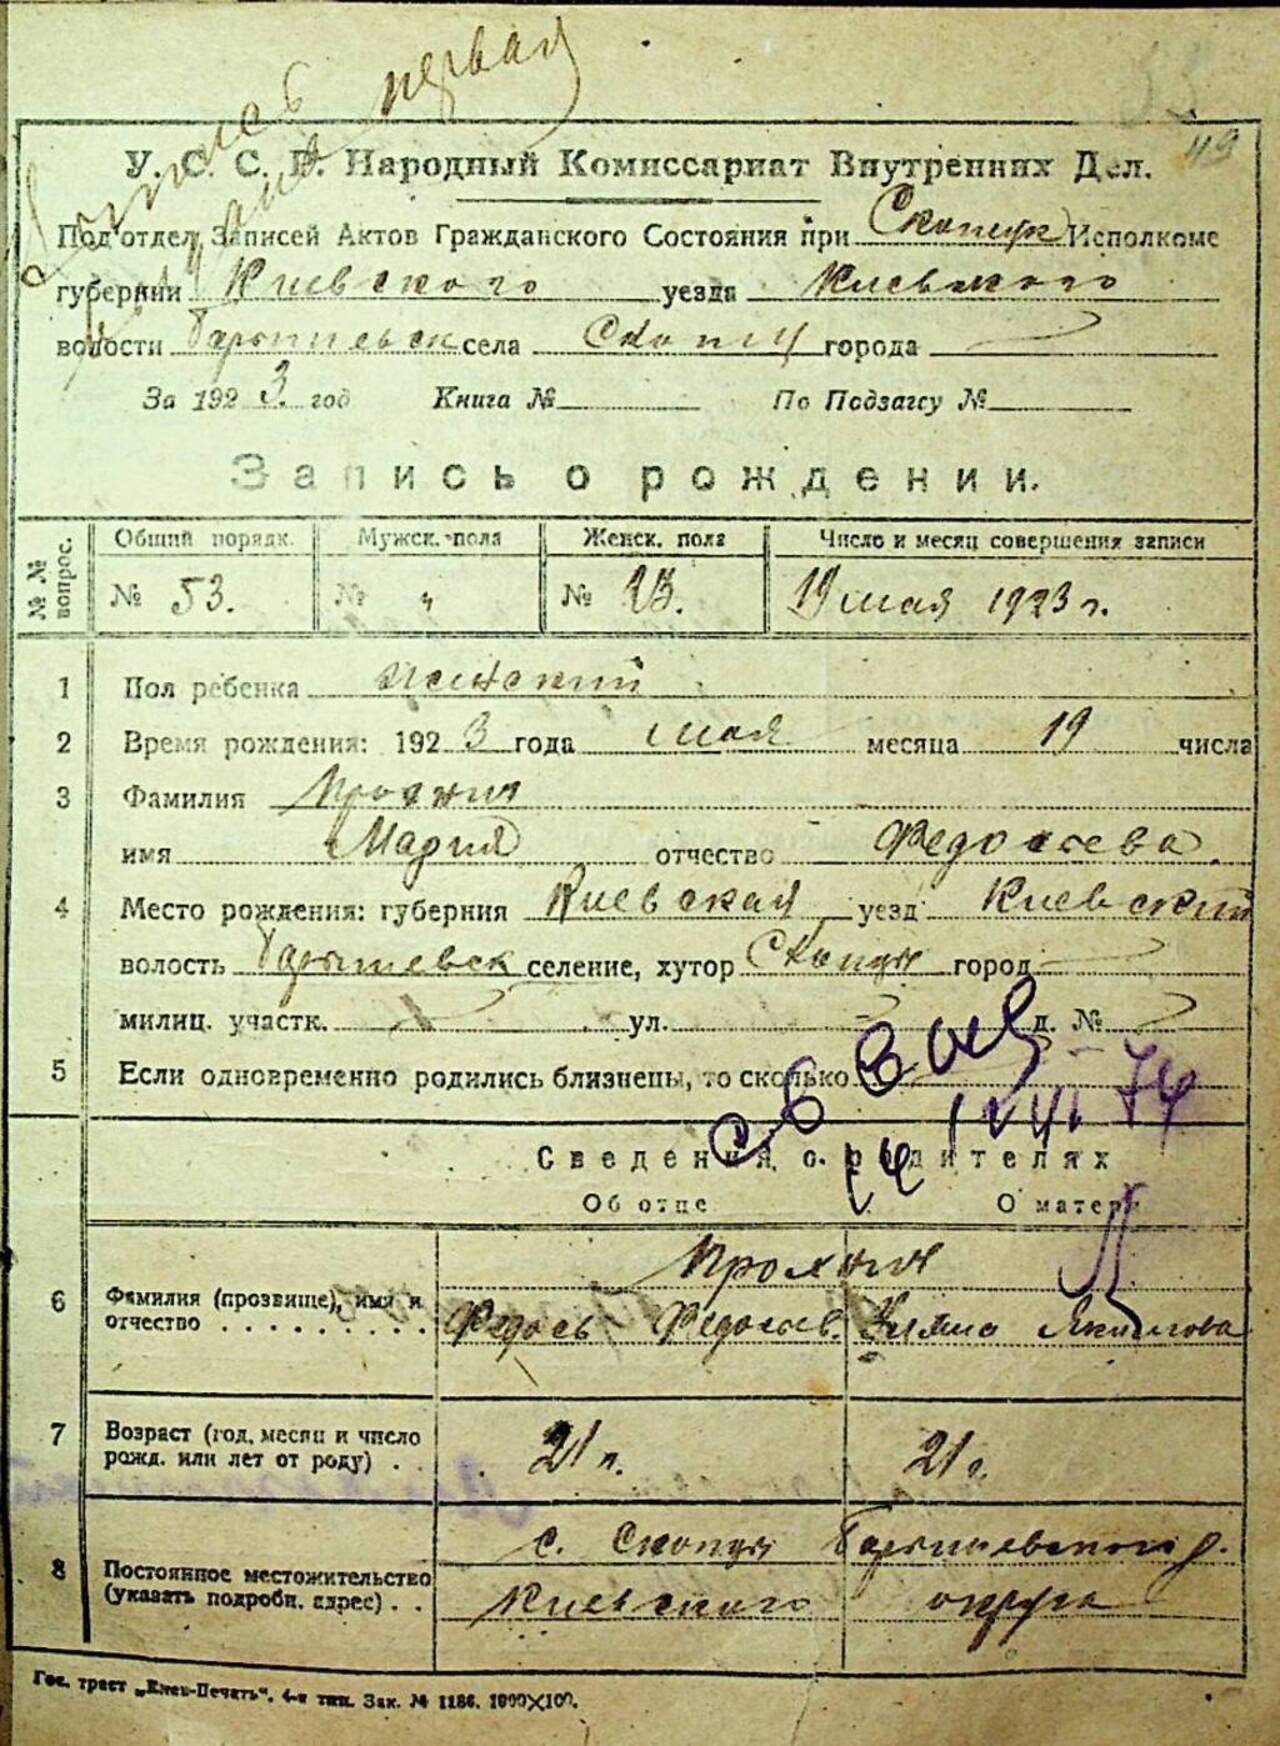 Запись первая
53
119
У. С. С. Р. Народный Комиссариат Внутренних Дел.
Под'отдел Записей Актов Гражданского Состояния при Скопцк Исполкоме
губернии Киевского уезда Киевского
волости Барышевск села Скопцы города
За 1923 год Книга № По Подзагсу №
Запись о рождении.
№ № вопрос. Общий порядк. Мужск. пола Женск. пола Число и месяц совершения записи
№ 53. № " № 23. 19 мая 1923 г.
1 Пол ребенка женский
2 Время рождения: 1923 года мая месяца 19 числа
3 Фамилия
имя Мария отчество Федосеева.
4 Место рождения: губерния Киевская уезд Киевский
волость Барышевск селение, хутор Скопцы город
милиц. участк. ул. д. №
5 Если одновременно родились близнецы, то сколько
св выд
14 IV 74
Сведения о родителях
Об отце О матери
6 Фамилия (прозвище), имя и
отчество . . . . . . . . . Федось Федосеев. Ульяна Якимова
7 Возраст (год, месяц и число
рожд. или лет от роду) . . 21 г. 21 г.
с. Скопцы Барышевского р.
8 Постоянное местожительство
(указать подробн. адрес) . . Киевского округа
Гос. трест „Киев-Печать". 4-я тип. Зак. № 1186. 1000X100.